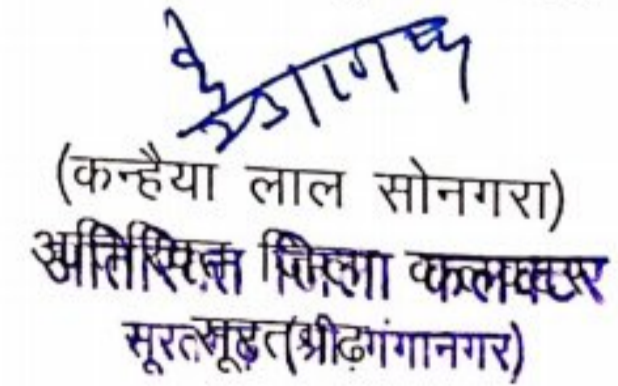 (कन्हैया लाल सोनगरा)
अतिरिक्त जिला कलक्टर
सूरतगढ़ (श्रीगंगानगर)